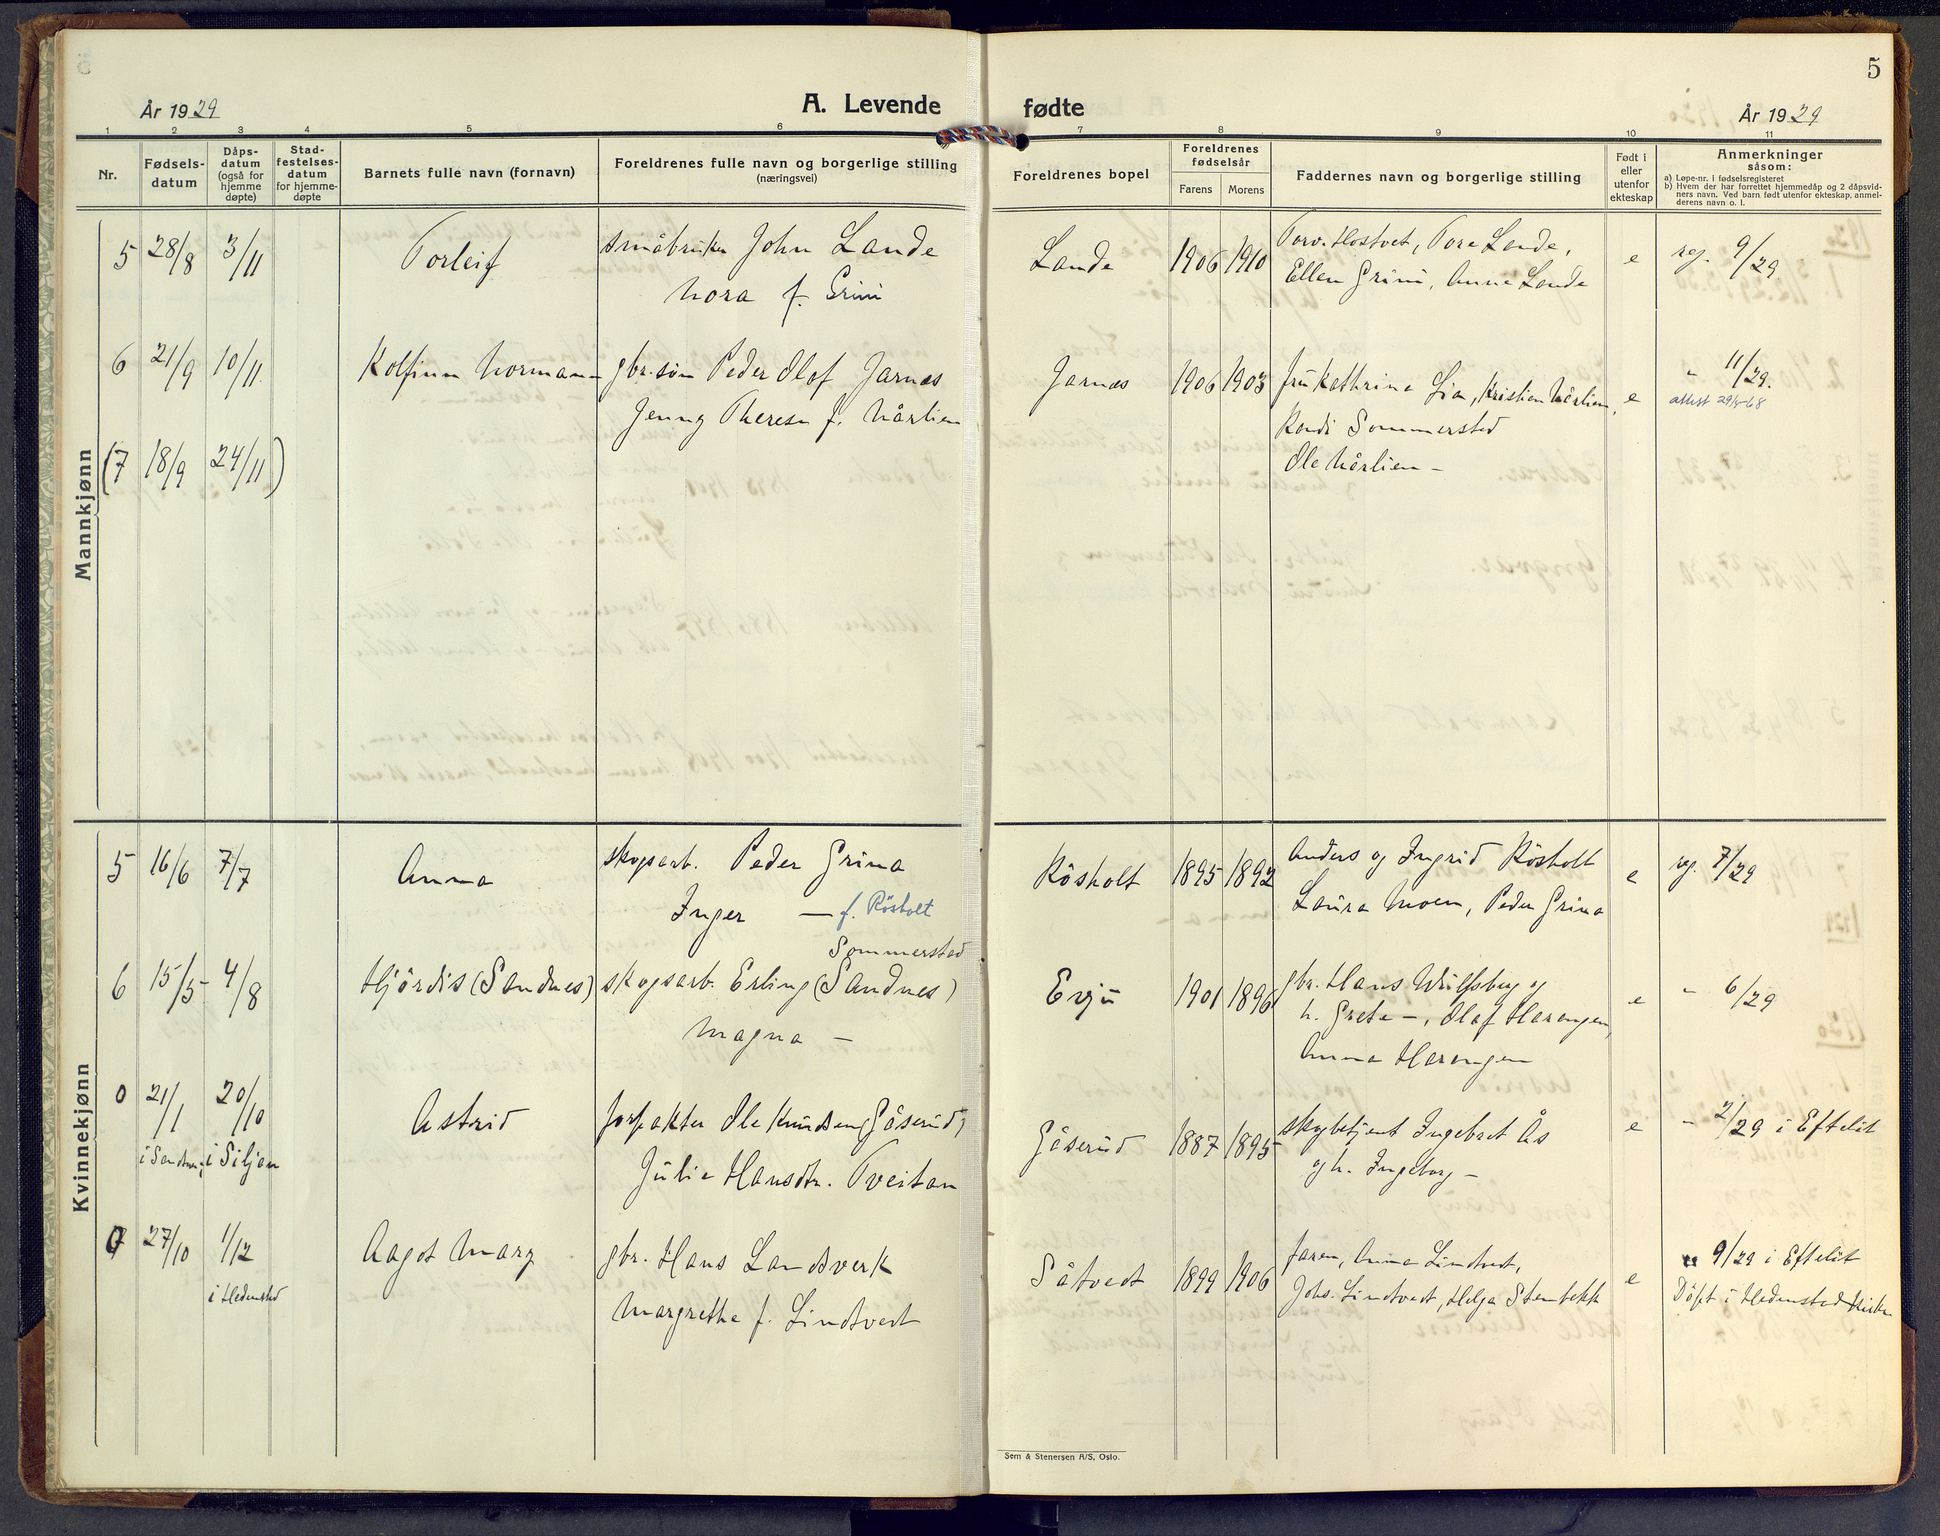 5
År 1929
A. Levende fødte
År 1929
1 2 3 4 5 6 7 8 9 10 11
Nr.
Fødsels-
datum
Dåps-
datum
(også for
hjemme
døpte)
Stad-
festelses-
datum
for hjemme-
døpte
Barnets fulle navn (fornavn)
Foreldrenes fulle navn og borgerlige stilling
(næringsvei)
Foreldrenes bopel
Foreldrenes
fødselsår
Farens Morens
Faddernes navn og borgerlige stilling
Født i
eller
utenfor
ekteskap
Anmerkninger
såsom:
a) Løpe-nr. i fødselsregisteret
b) Hvem der har forrettet hjemmedåp og 2 dåpsvid-
ners navn. Ved barn født utenfor ekteskap, anmel-
derens navn o. l.
Mannkjønn
5 28/8 3/11 Torleif småbruker John Lande Lande 1906 1910 Torv. Hostvet, Tore Lande, e reg. 9/29
Nora f. Grini Ellen Grini, Anne Lande
6 21/9 10/11 Kolfinn Normann gbr.søn Peder Olaf Jarnæs Jarnæs 1906 1903 fru Kathrine Lia, Kristian Nårlien, e " 11/29.
Jenny Therese f. Nårlien Randi Sommersted attest 29/5-68
Ole Nårlien –
(7 18/9 24/11)
Kvinnekjønn
5 16/6 7/7 Anna skogsarb. Peder Grina Røsholt 1895 1892 Anders og Ingrid Røsholt e reg. 7/29
Inger — f. Røsholt Laura Moen, Peder Grina
Sommersted
6 15/5 4/8 Hjørdis (Sandnes) skogsarb. Erling (Sandnes) Evju 1901 1896 gbr. Hans Wulfsberg og e " 6/29
Magna — h. Grete –, Olaf Harengen,
Anna Harengen
0 21/1 20/10 Astrid forpakter Ole Knudsen (Gåserud) Gåserud 1887 1895 skogbetjent Ingebret Ås e " 2/29 i Eftelöt
i Siljan Julie Hansdtr. Tveitan og h. Ingeborg –
0 27/10 1/12 Aagot Marg gbr. Hans Landsverk Såtvedt 1899 1906 faren, Anna Lindtvedt, e " 9/29 i Eftelöt
i Hedensted Margrethe f. Lindtvedt Johs. Lindtvedt, Helga Stenbekk Døpt i Hedensted kirke
Sem & Stenersen A/S, Oslo.